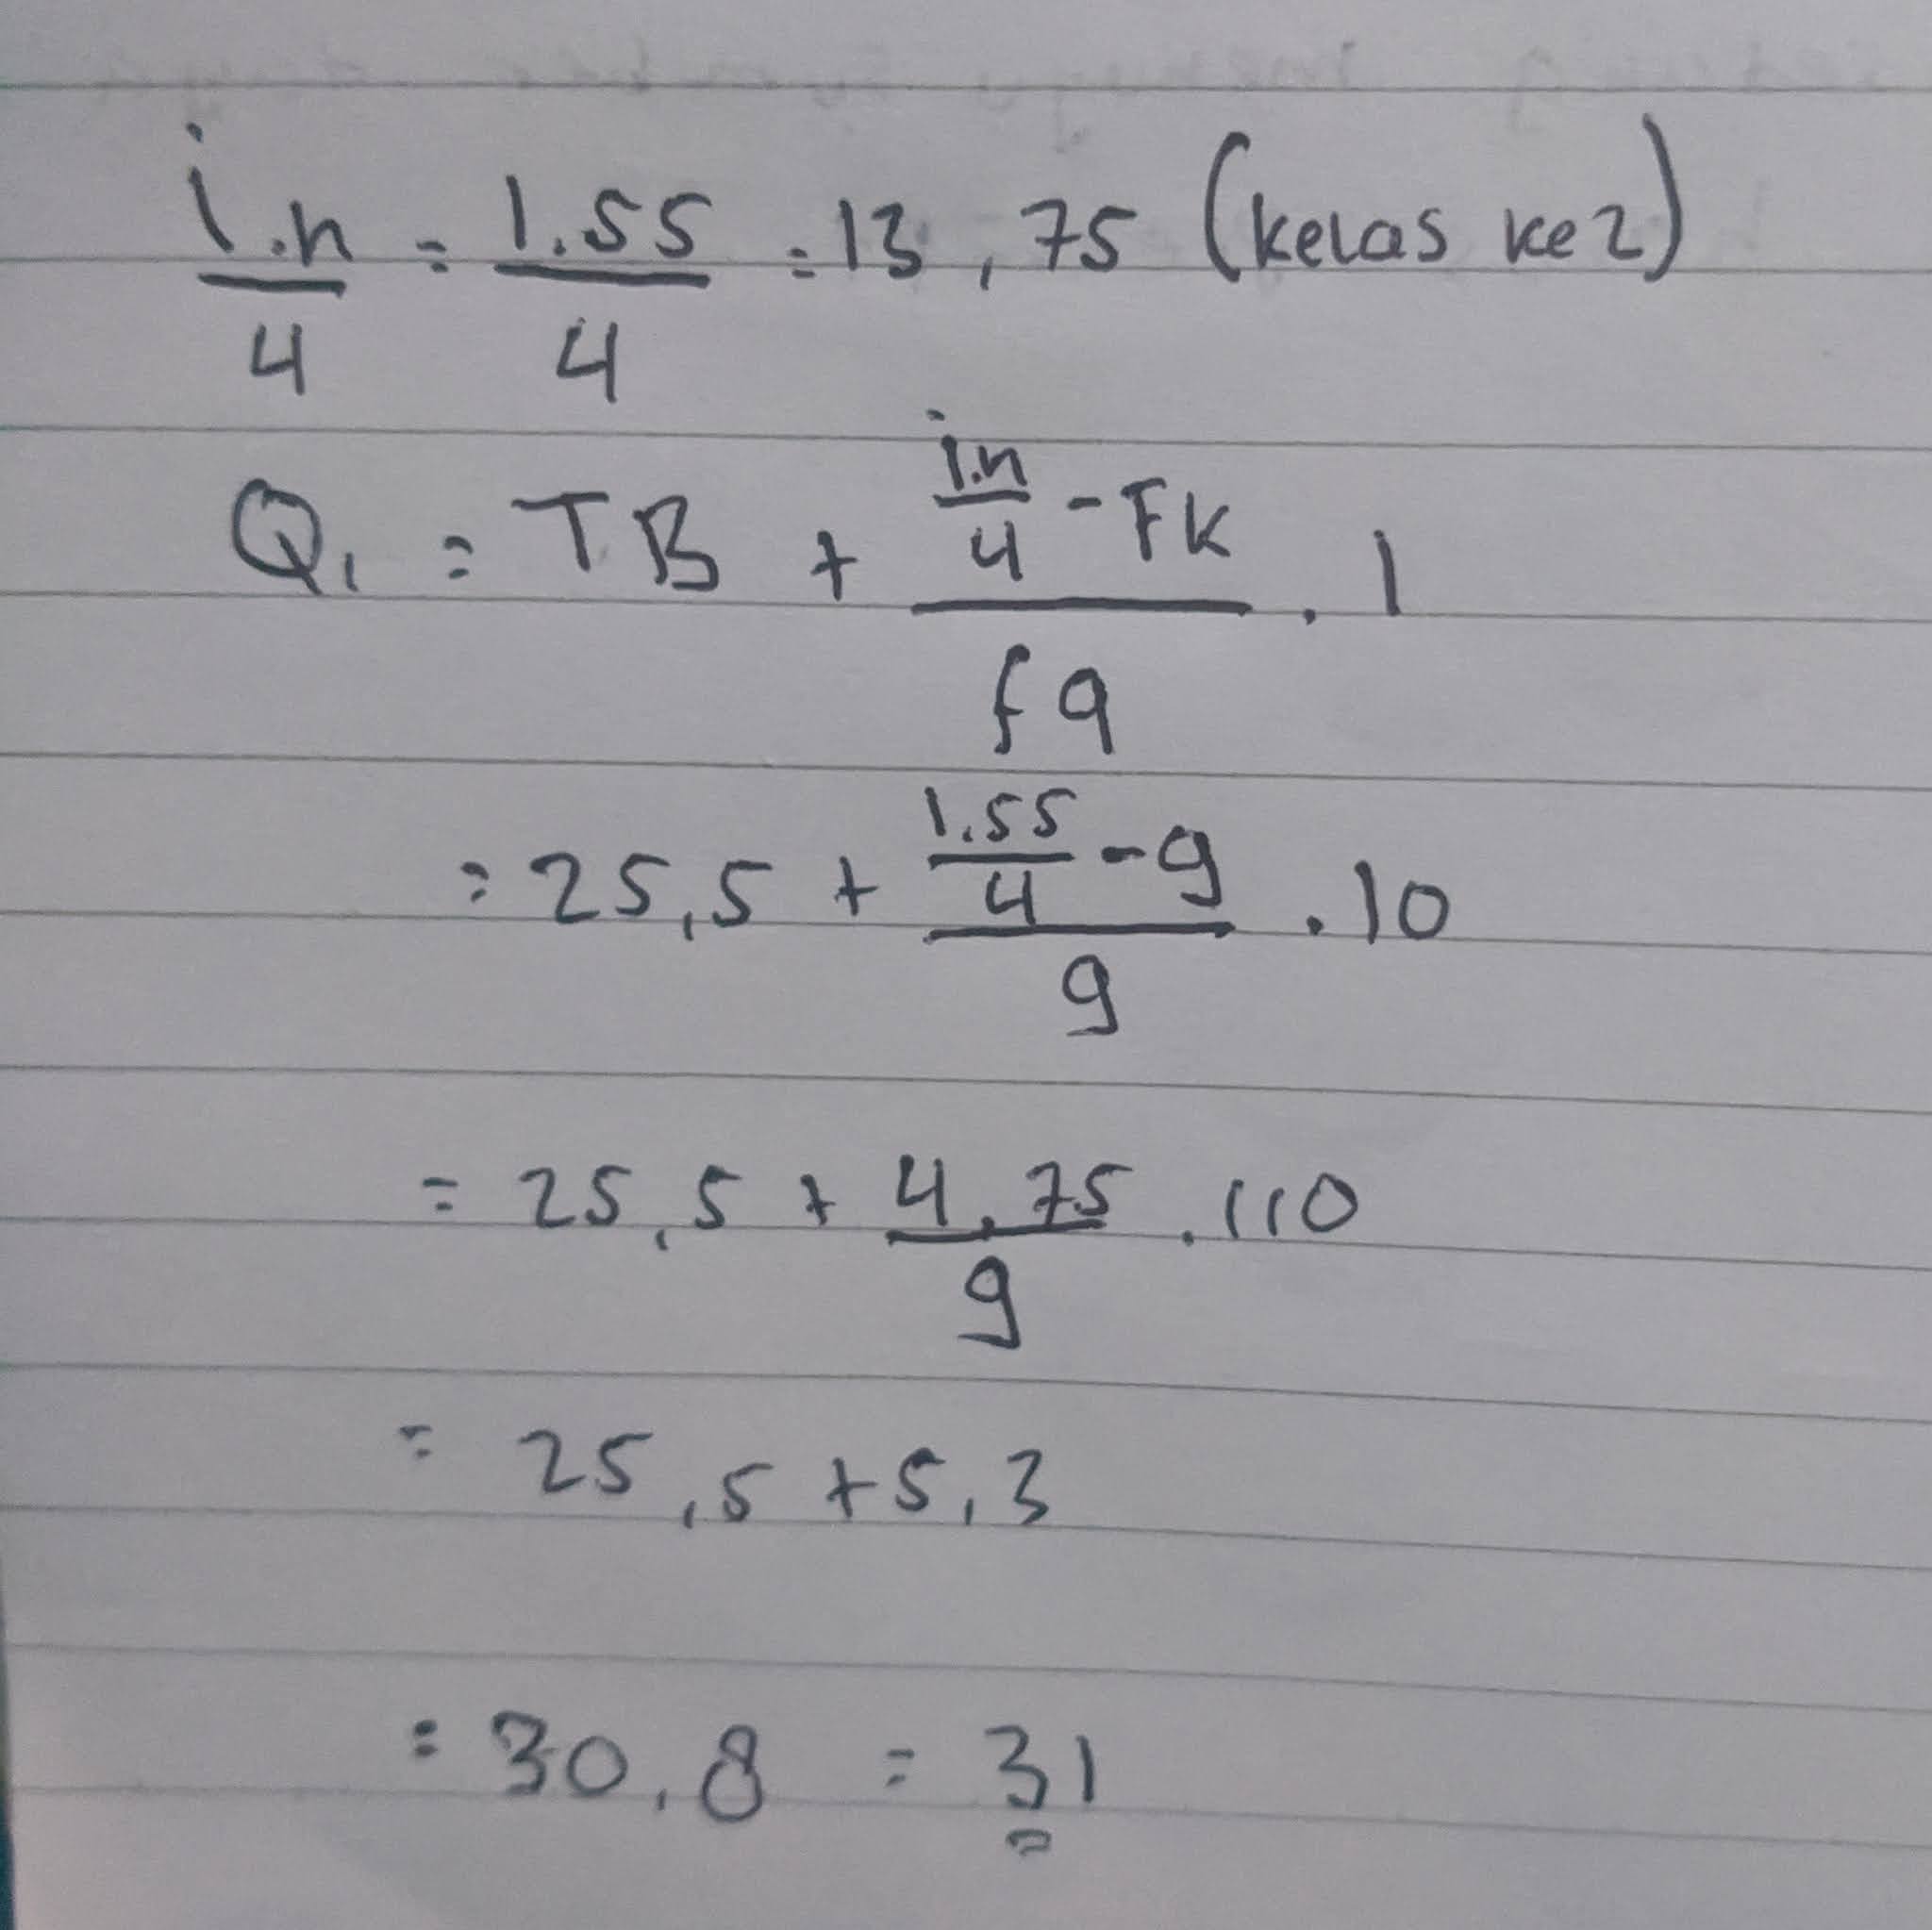 i.n/4 = 1.55/4 = 13,75 (kelas ke 2)
Q1 = TB + (i.n/4 - Fk)/fq . 1
= 25,5 + (1.55/4 - 9)/9 . 10
= 25,5 + 4,75/9 . 110
= 25,5 + 5,3
= 30,8 = 31